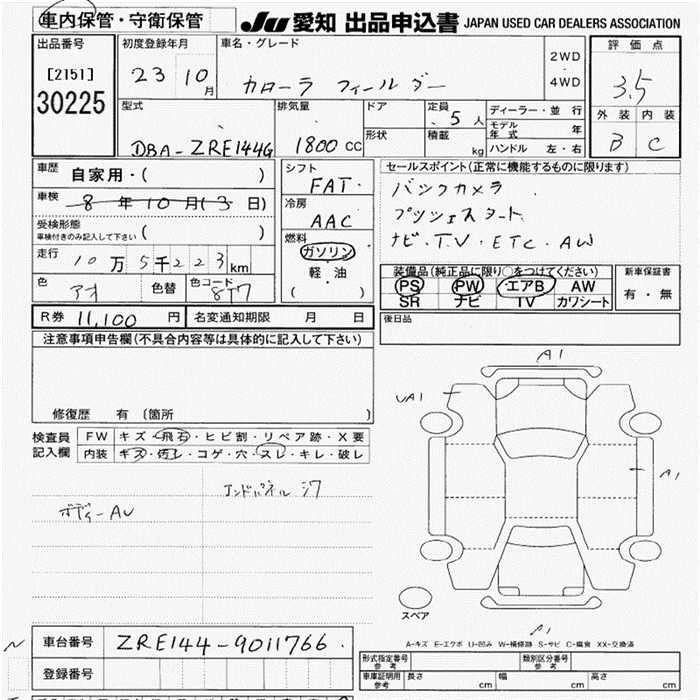 車内保管・守衛保管 JU 愛知 出品申込書 JAPAN USED CAR DEALERS ASSOCIATION
出品番号 初度登録年月 車名・グレード 2WD・4WD 評価点
[2151] 23 10月 カローラ フィールダー 3.5
30225
型式 排気量 ドア 定員 5人 ディーラー・並行 外装 内装
モデル年式 年
DBA-ZRE144G 1800cc 形状 積載 kg ハンドル 左・右 B C
車歴 自家用・( ) シフト FAT セールスポイント(正常に機能するものに限ります)
車検 8年10月(3日) 冷房 AAC バックカメラ
受検形態 ( ) プッシュスタート
車検付きのみ記入して下さい 燃料 ガソリン ナビ・TV・ETC・AW
走行 10万5千223km 軽・油
( )
装備品(純正品に限り○をつけてください) 新車保証書
色 アオ 色替 色コード 8T7 PS PW エアB AW 有・無
SR ナビ TV カワシート
R券 11,100円 名変通知期限 月 日 後日品
注意事項申告欄(不具合内容等は具体的に記入して下さい)
A1
UA1
修復歴 有〔箇所 〕
検査員記入欄 FW キズ・飛石・ヒビ割・リペア跡・X要
内装 キズ・汚し・コゲ・穴・スレ・キレ・破レ
A1
エンドパネル
ボディーAU
スペア
A1
A-キズ E-エクボ U-凹み W-補修跡 S-サビ C-腐食 XX-交換済
N 車台番号 ZRE144-9011766
形式指定番号 参考 類別区分番号 参考
登録番号 車庫証明用 参考 長さ cm 幅 cm 高さ cm